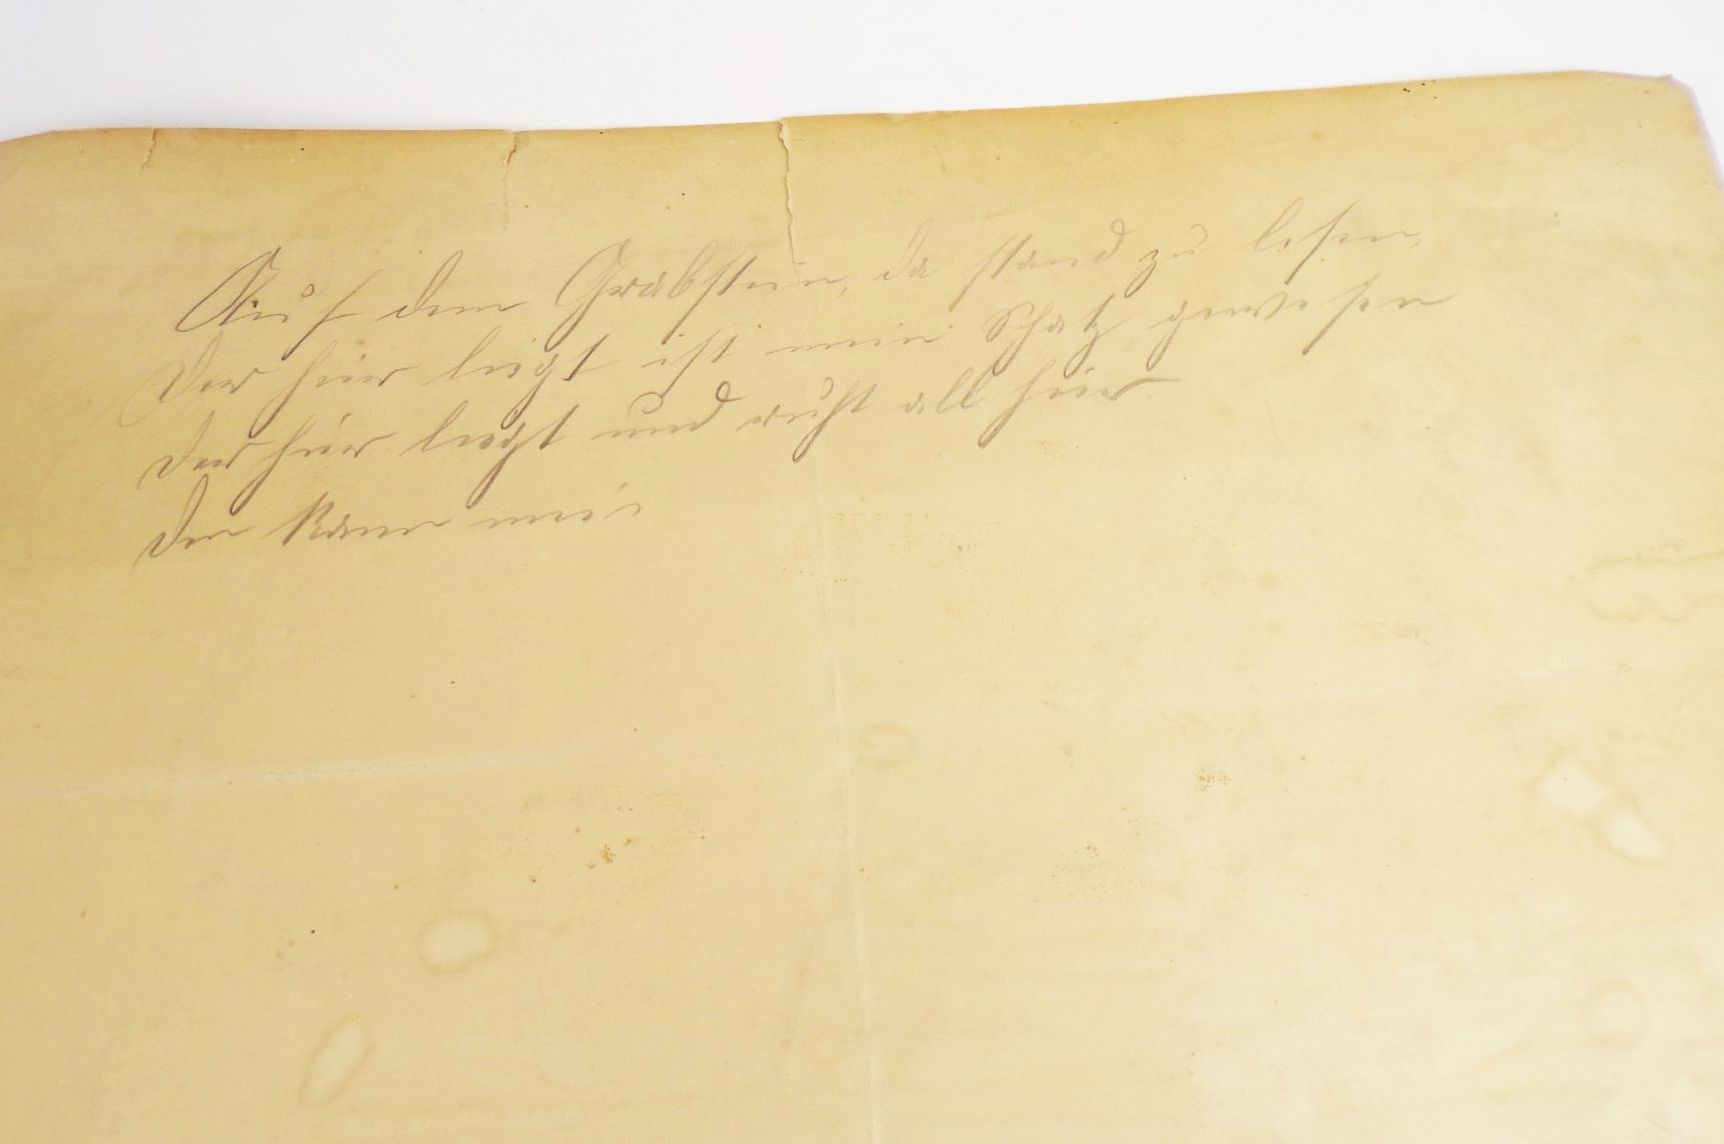 Auf dem Grabstein, da stand zu lesen,
Der hier liegt ist mein Schatz gewesen
Der hier liegt und ruht all hier
Der kann